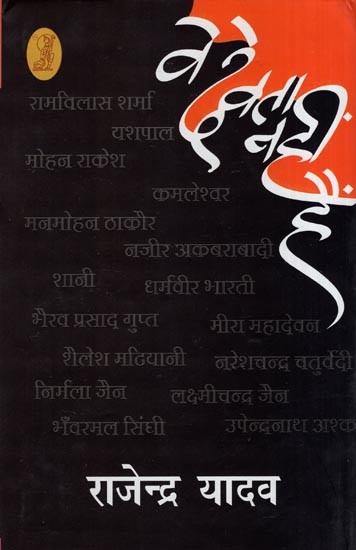 वे देवता नहीं हैं
रामविलास शर्मा
यशपाल
मोहन राकेश
कमलेश्वर
मनमोहन ठाकौर
नजीर अकबराबादी
शानी
धर्मवीर भारती
भैरव प्रसाद गुप्त
मीरा महादेवन
शैलेश मटियानी
नरेशचन्द्र चतुर्वेदी
निर्मला जैन
लक्ष्मीचन्द्र जैन
भँवरमल सिंघी
उपेन्द्रनाथ अश्क
राजेन्द्र यादव